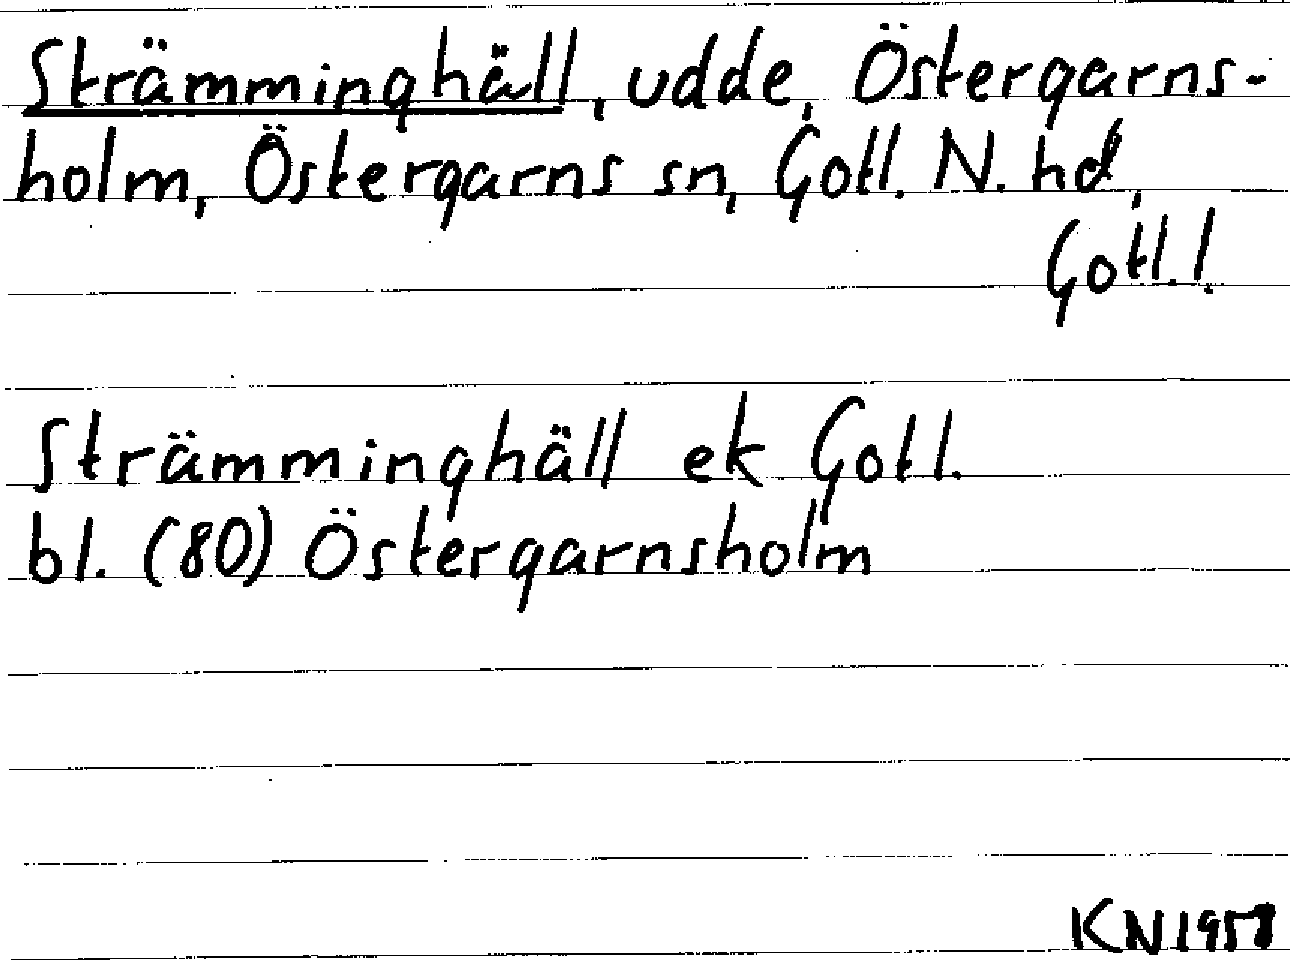 Strämminghäll, udde, Östergarns-
holm, Östergarns sn, Gotl. N. hd,
Gotl.!
Strämminghäll ek Gotl.
bl. (80) Östergarnsholm